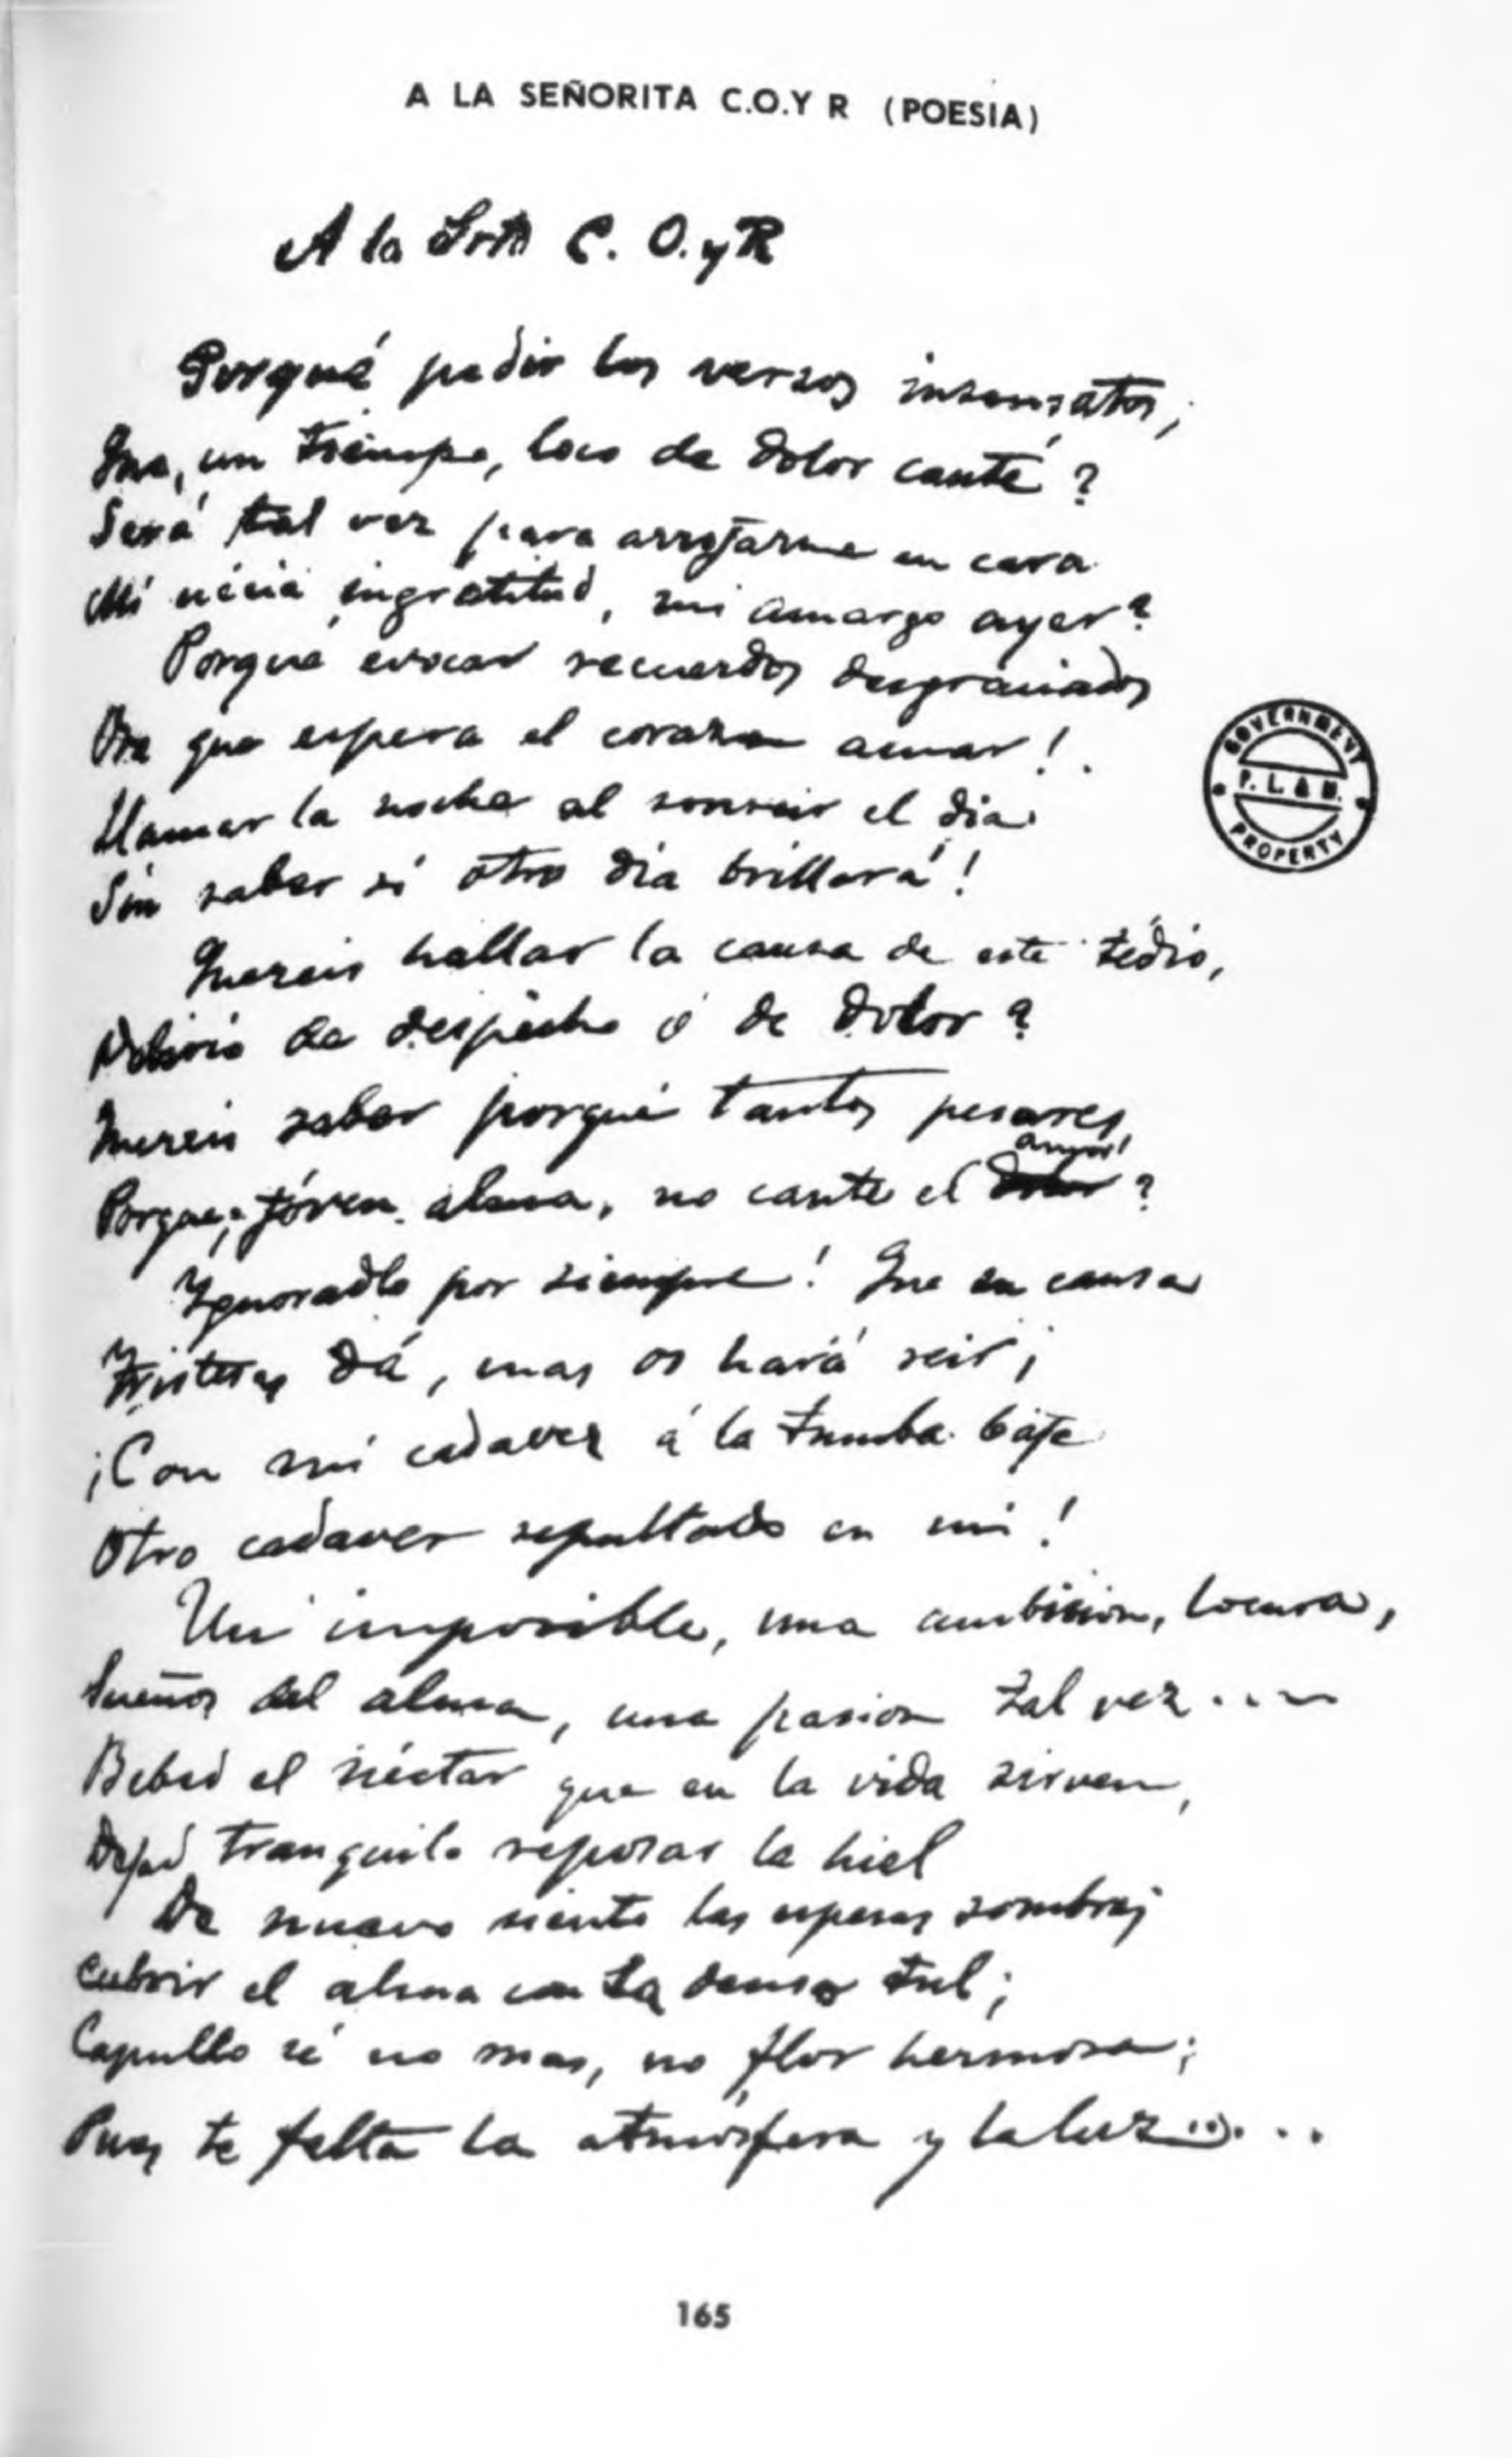 A LA SEÑORITA C.O.Y R (POESIA)
A la Srta C. O. y R
Porqué pedir los versos insensatos,
Que, un tiempo, loco de dolor canté?
Será tal vez para arrojarme en cara
Mi nécia ingratitud, mi amargo ayer?
Porqué evocar recuerdos desgraciados
Ora que espera el corazon amar!
Llamar la noche al sonreir el dia
Sin saber si otro dia brillará!
Quereis hallar la causa de este tédio,
Delirio de despecho ó de dolor?
Quereis saber porqué tantos pesares
amor!
Porque, jóven alma, no canté el dolor?
Ignoradlo por siempre! Que su causa
Tristezas dá, mas os hará reir;
¡Con mi cadaver á la tumba baje
Otro cadaver sepultado en mi!
Un imposible, una ambicion, locura,
Sueños del alma, una pasion tal vez....
Bebed el néctar que en la vida sirven,
Dejad tranquilo reposar la hiel
De nuevo siento las espesas sombras
Cubrir el alma con la denso tul;
Capullo sí no mas, no flor hermosa;
Pues te falta la atmósfera y la luz.....
GOVERNMENT
P. L. & M.
PROPERTY
165